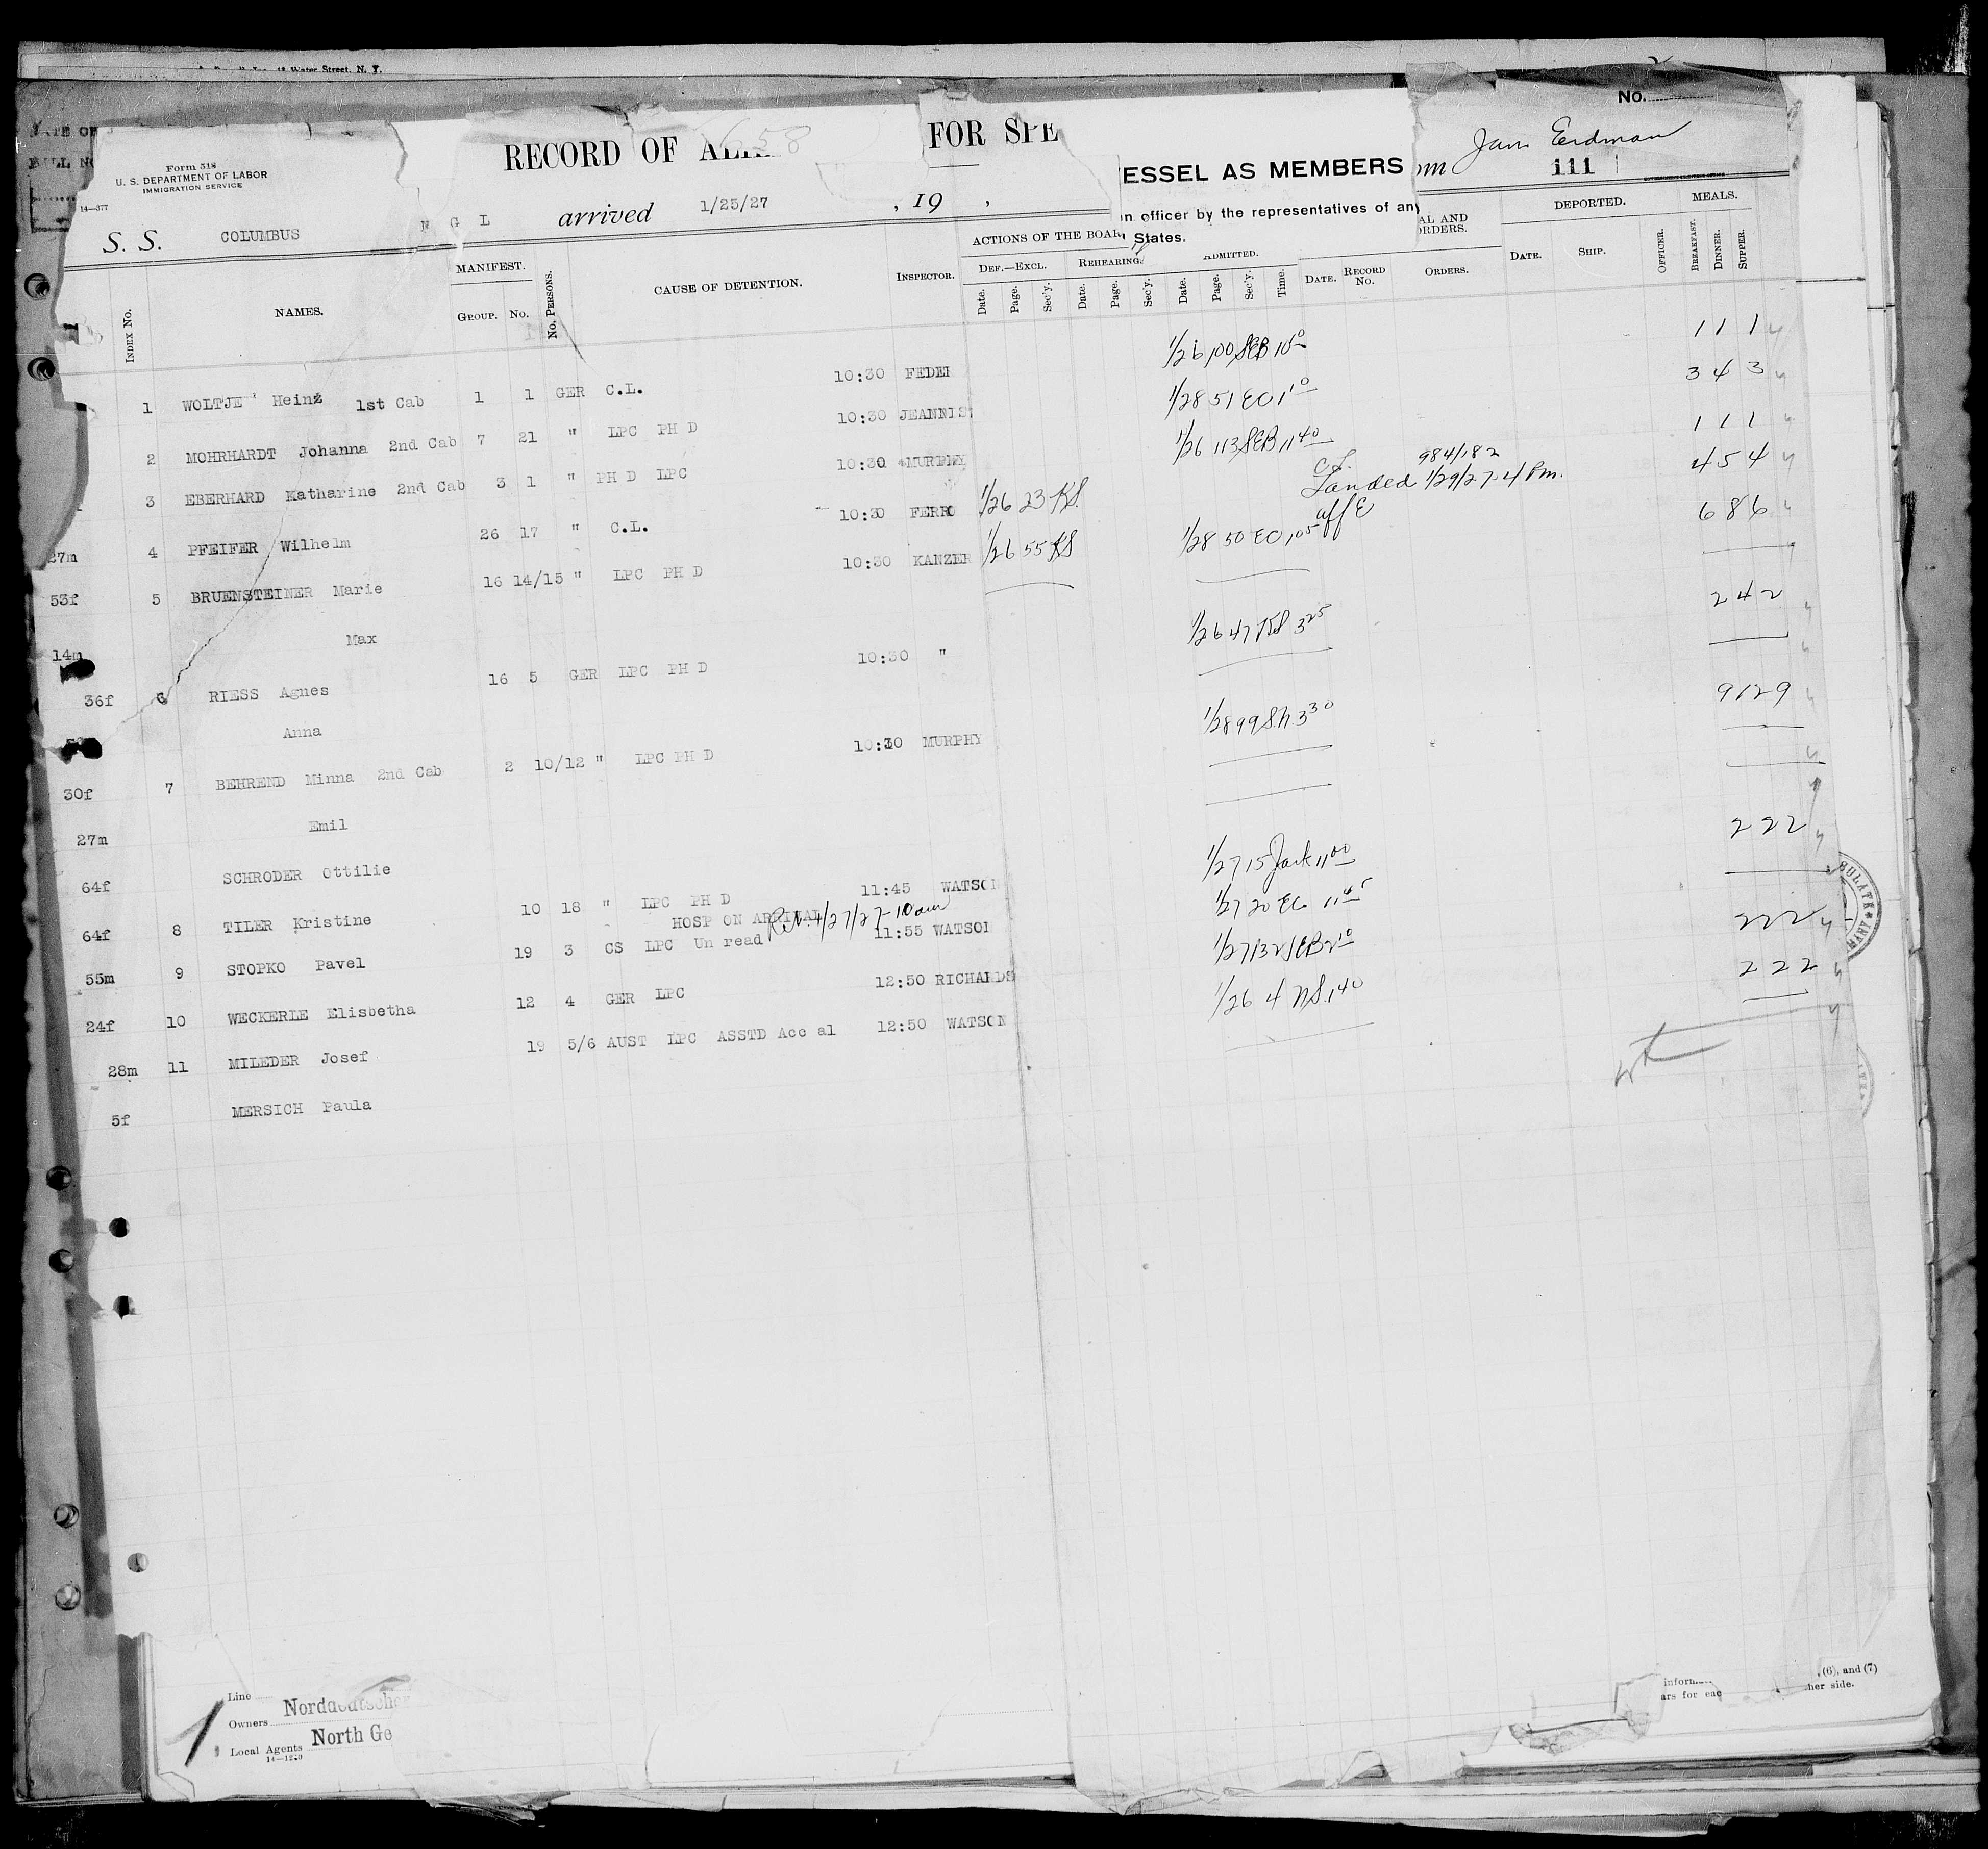 12 Water Street, N. Y.
No.
Form 518
U. S. DEPARTMENT OF LABOR
IMMIGRATION SERVICE
14—377
RECORD OF
658
FOR SPE
ESSEL AS MEMBERS
Erdman
111
S. S. COLUMBUS N G L arrived 1/25/27 , 19 ,
n officer by the representatives of any
States.
ACTIONS OF THE BOAR
AL AND
ORDERS.
DEPORTED.
MEALS.
INDEX No.
NAMES.
MANIFEST.
GROUP. No.
No. PERSONS.
CAUSE OF DETENTION.
INSPECTOR.
DEF.—EXCL.
Date. Page. Sec'y.
REHEARING.
Date. Page. Sec'y.
ADMITTED.
Date. Page. Sec'y. Time.
DATE. RECORD No. ORDERS.
DATE. SHIP. OFFICER.
BREAKFAST. DINNER. SUPPER.
1 WOLTJE Heinz 1st Cab 1 1 GER C.L. 10:30 FEDER 1/26 100 SEB 1 1 1
2 MOHRHARDT Johanna 2nd Cab 7 21 " LPC PH D 10:30 JEANNIS 1/28 51 EO 1 10 3 4 3
3 EBERHARD Katharine 2nd Cab 3 1 " PH D LPC 10:30 MURPHY 1/26 113 SEB 11 40 1 1 1
27m 4 PFEIFER Wilhelm 26 17 " C.L. 10:30 FERRO 1/26 23 KS. 984/182 Landed 1/29/27 4 Pm. 4 5 4
53f 5 BRUENSTEINER Marie 16 14/15 " LPC PH D 10:30 KANZER 1/26 55 KS 1/28 50 EO 1 05 6 8 6
14m Max
36f 6 RIESS Agnes 16 5 GER LPC PH D 10:30 " 1/26 47 KS 3 25 2 4 2
Anna
30f 7 BEHREND Minna 2nd Cab 2 10/12 " LPC PH D 10:30 MURPHY 1/28 99 3 30 9 12 9
27m Emil
64f SCHRODER Ottilie
64f 8 TILER Kristine 10 18 " LPC PH D 11:45 WATSON 1/27 15 11 00 2 2 2
HOSP ON ARRIVAL
55m 9 STOPKO Pavel 19 3 CS LPC Un read 11:55 WATSON 1/27 20 EO 11 45
24f 10 WECKERLE Elisbetha 12 4 GER LPC 12:50 RICHARDS 1/27 132 SEB 2 10 2 2 2
28m 11 MILEDER Josef 19 5/6 AUST LPC ASSTD Acc al 12:50 WATSON 1/26 4 1 40 2 2 2
5f MERSICH Paula
Line
Owners Norddeutscher
Local Agents North Ge
14—1240
, (6), and (7)
ars for eac her side.